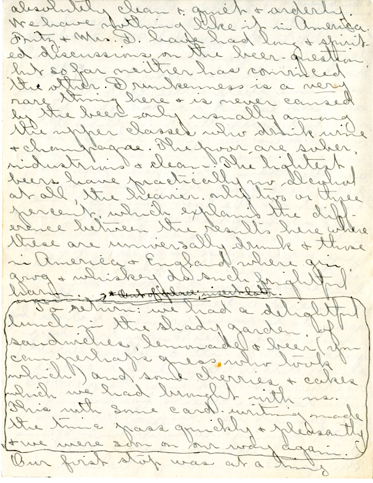 absolutely clean & quiet & orderly.
We have nothing like it in America.
Fritz & Mrs. D. have had long & spirit-
ed discussions on the beer question
but so far neither has convinced
the other. Drunkenness is a very
rare thing here & is never caused
by the beer - only usually among
the upper classes who drink wine
& champagne. The poor are sober,
industrious & clean. The lightest
beers have practically no alcohol
at all, the heavier only two or three
percent, which explains the diff-
erence between the results here where
these are universally drunk & those
in America & England where gin,
grog & whiskey do such frightful
harm.
To return: we had a delightful
lunch in the shady garden of
sandwiches, lemonade & beer (you
can perhaps guess who took
which) and some cherries & cakes
which we had brought with us.
This with some card writing made
the time pass quickly & pleasantly
& we were soon on our way again.
Our first stop was at a tiny